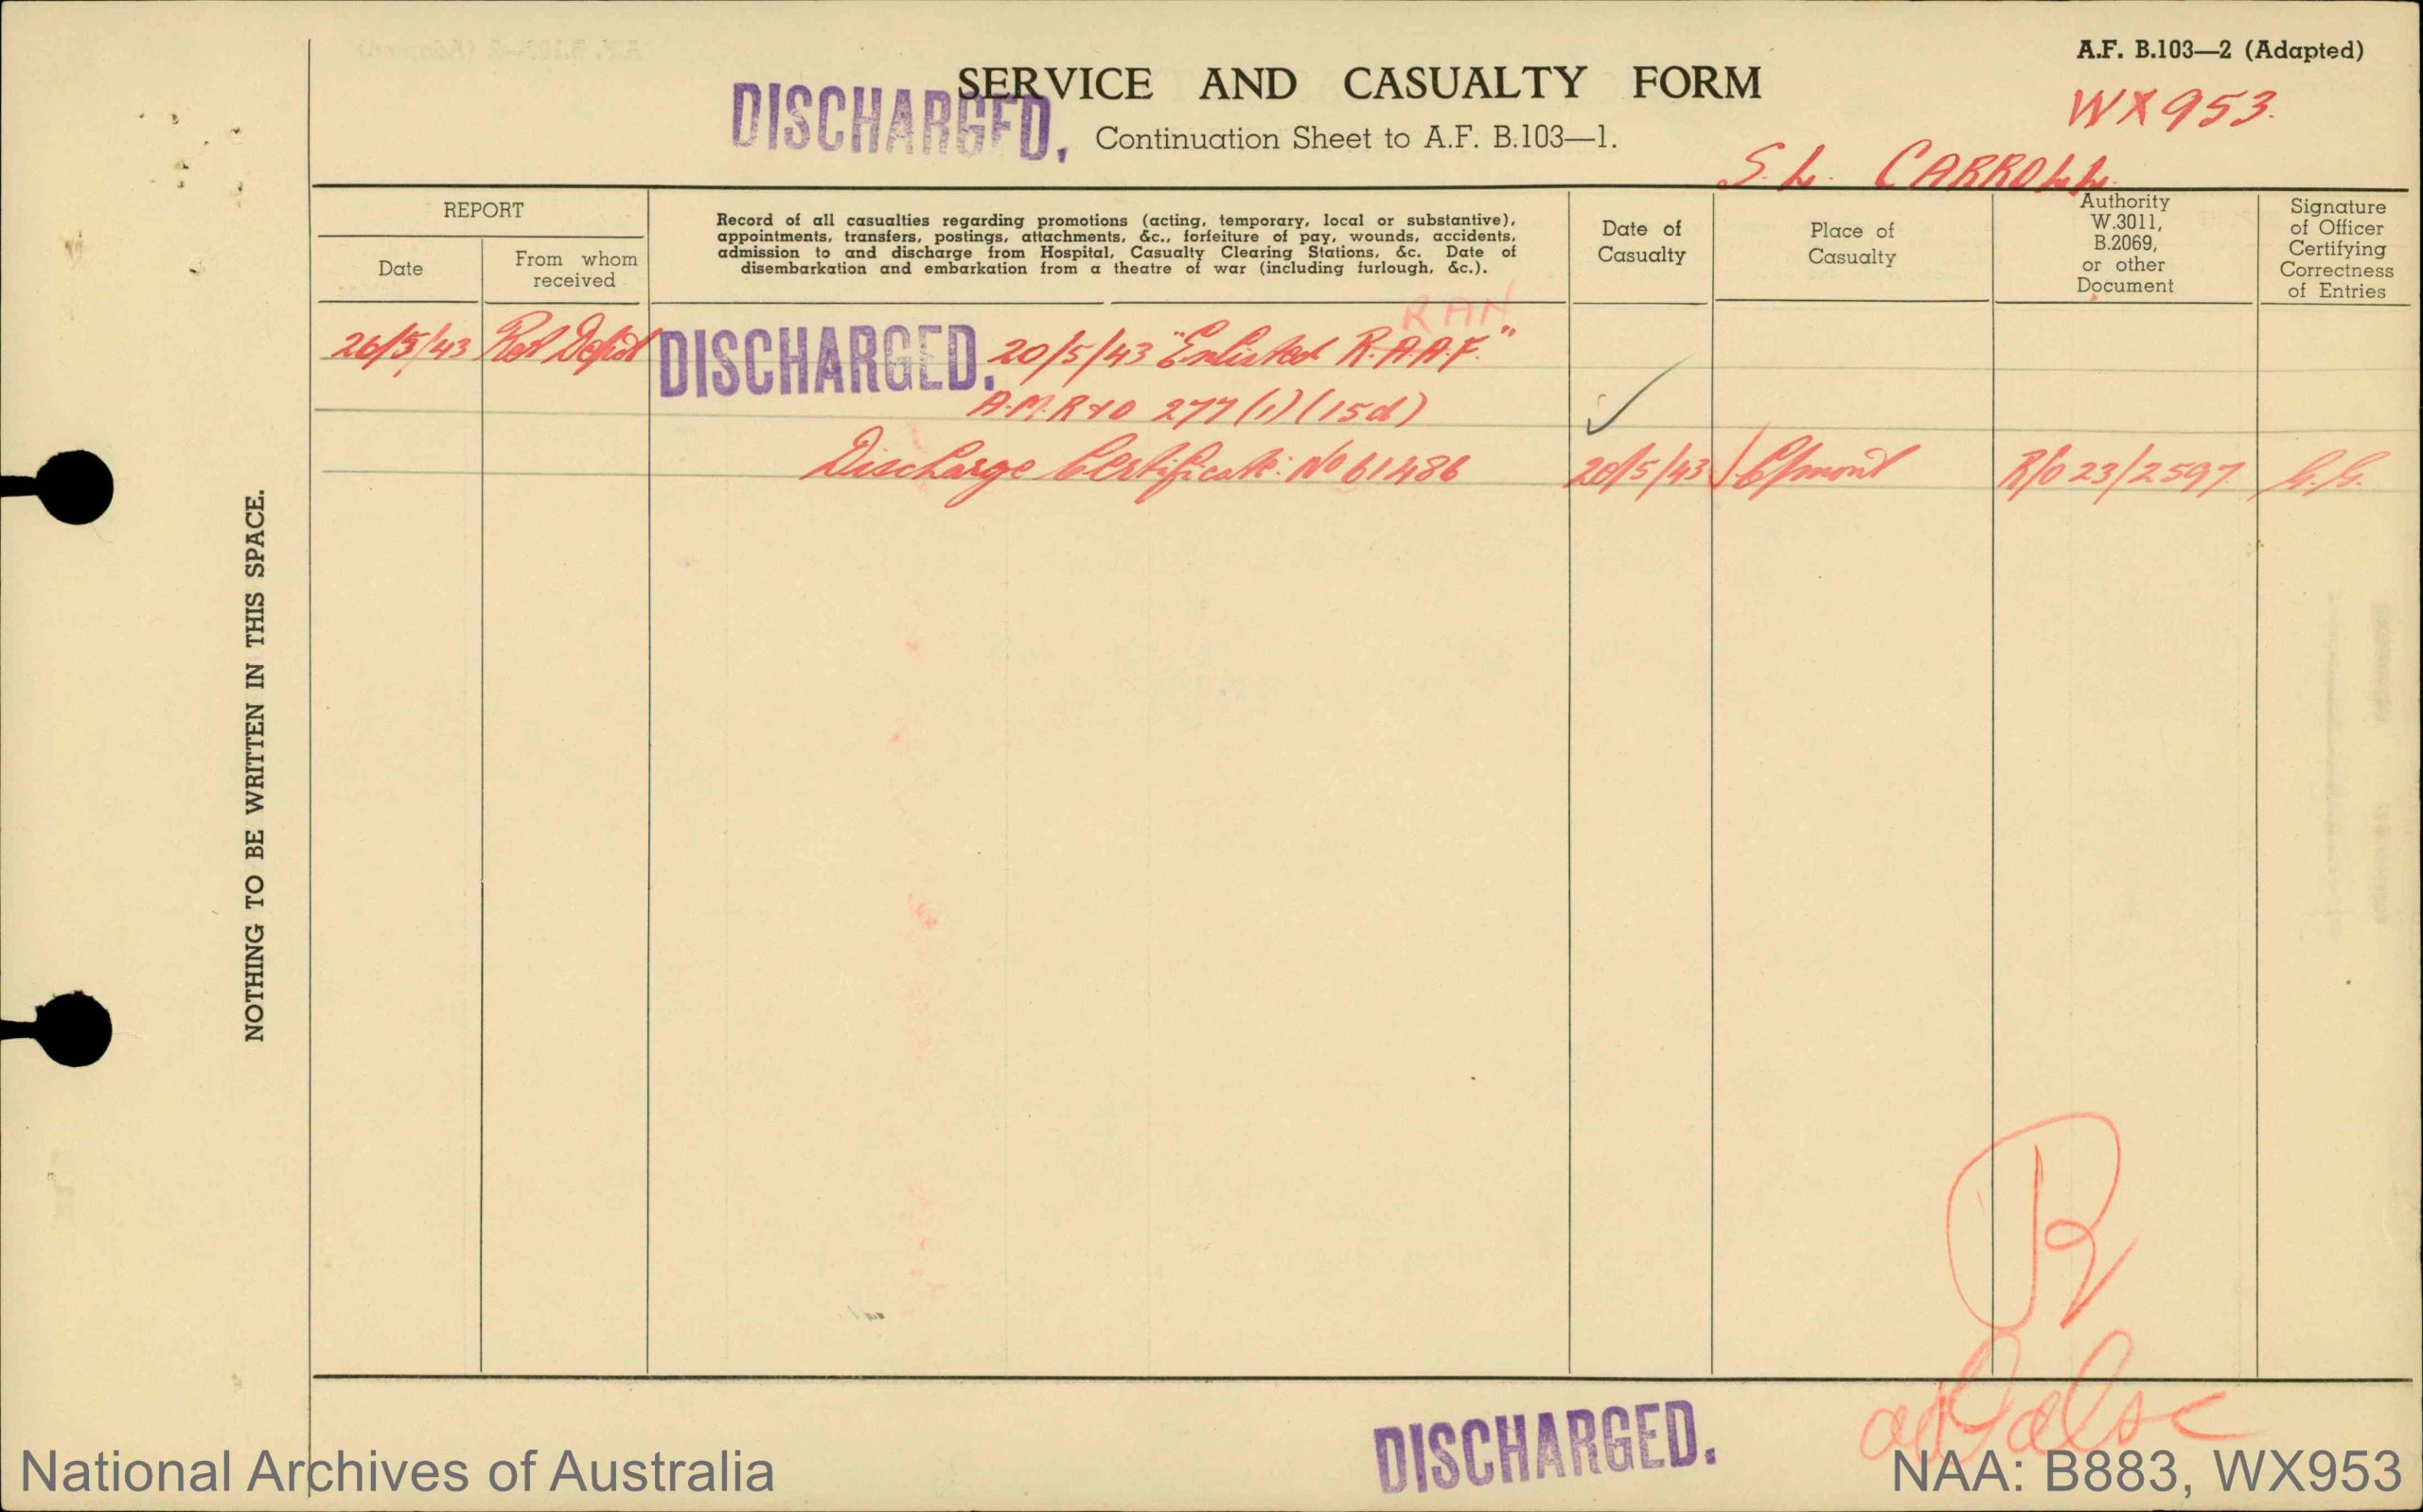 A.F. B.103—2 (Adapted)
SERVICE AND CASUALTY FORM
WX953.
DISCHARGED.
Continuation Sheet to A.F. B.103—1.
S.L. CARROLL.
REPORT
Date
From whom
received
Record of all casualties regarding promotions (acting, temporary, local or substantive),
appointments, transfers, postings, attachments, &c., forfeiture of pay, wounds, accidents,
admission to and discharge from Hospital, Casualty Clearing Stations, &c. Date of
disembarkation and embarkation from a theatre of war (including furlough, &c.).
Date of
Casualty
Place of
Casualty
Authority
W.3011,
B.2069,
or other
Document
Signature
of Officer
Certifying
Correctness
of Entries
RAN
26/5/43 Depot DISCHARGED. 20/5/43 "Enlisted R.A.A.F."
A.M.R&O 277 (1) (15d)
Discharge Certificate: No 61486 20/5/43 C/mont R/O 23/2597 G.G.
NOTHING TO BE WRITTEN IN THIS SPACE.
R
DISCHARGED.
National Archives of Australia
NAA: B883, WX953